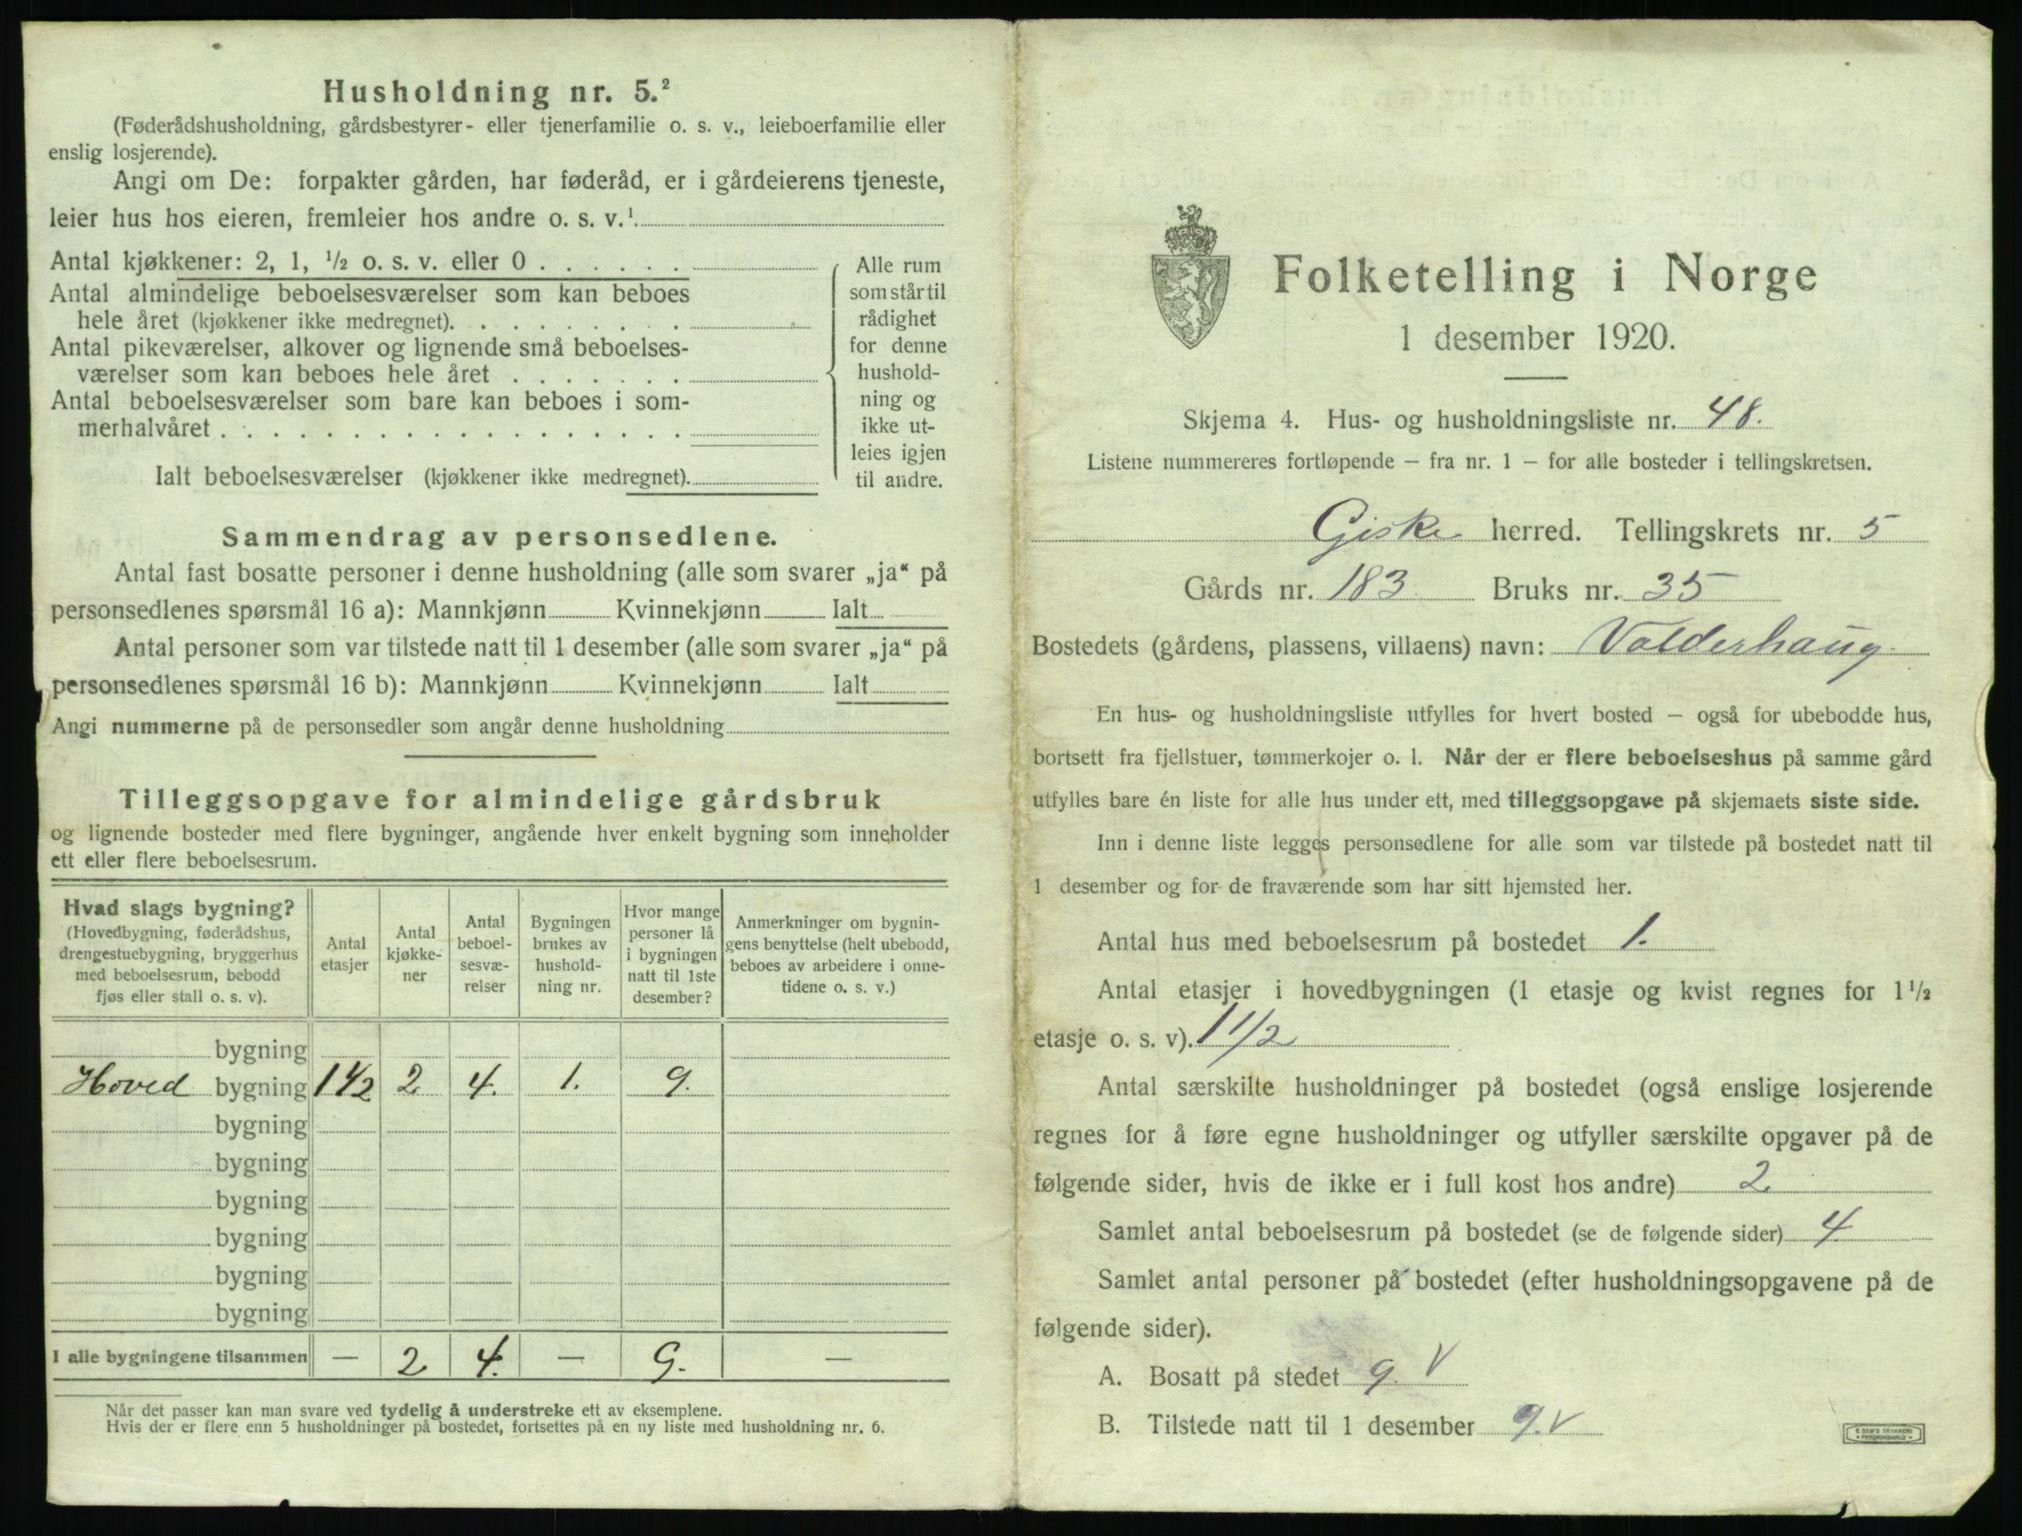 Husholdning nr. 5.²
(Føderådshusholdning, gårdsbestyrer- eller tjenerfamilie o. s. v., leieboerfamilie eller
enslig losjerende).
Angi om De: forpakter gården, har føderåd, er i gårdeierens tjeneste,
leier hus hos eieren, fremleier hos andre o. s. v.¹
Antal kjøkkener: 2, 1, ½ o. s. v. eller 0 . . . . . .
Antal almindelige beboelsesværelser som kan beboes
hele året (kjøkkener ikke medregnet). . . . . . . . .
Antal pikeværelser, alkover og lignende små beboelses-
værelser som kan beboes hele året . . . . . . .
Antal beboelsesværelser som bare kan beboes i som-
merhalvåret . . . . . . . . . . . . . . . . . .
Ialt beboelsesværelser (kjøkkener ikke medregnet).
Alle rum
som står til
rådighet
for denne
hushold-
ning og
ikke ut-
leies igjen
til andre.
Sammendrag av personsedlene.
Antal fast bosatte personer i denne husholdning (alle som svarer „ja“ på
personsedlenes spørsmål 16 a): Mannkjønn Kvinnekjønn Ialt
Antal personer som var tilstede natt til 1 desember (alle som svarer „ja“ på
personsedlenes spørsmål 16 b): Mannkjønn Kvinnekjønn Ialt
Angi nummerne på de personsedler som angår denne husholdning
Tilleggsopgave for almindelige gårdsbruk
og lignende bosteder med flere bygninger, angående hver enkelt bygning som inneholder
ett eller flere beboelsesrum.
Hvad slags bygning?
(Hovedbygning, føderådshus,
drengestuebygning, bryggerhus
med beboelsesrum, bebodd
fjøs eller stall o. s. v).
Antal
etasjer
Antal
kjøkke-
ner
Antal
beboel-
sesvæ-
relser
Bygningen
brukes av
hushold-
ning nr.
Hvor mange
personer lå
i bygningen
natt til 1ste
desember?
Anmerkninger om bygnin-
gens benyttelse (helt ubebodd,
beboes av arbeidere i onne-
tidene o. s. v.)
bygning
Hoved bygning 1 1/2 2 4. 1. 9.
bygning
bygning
bygning
bygning
bygning
bygning
I alle bygningene tilsammen — 2 4. — 9. —
Når det passer kan man svare ved tydelig å understreke ett av eksemplene.
Hvis der er flere enn 5 husholdninger på bostedet, fortsettes på en ny liste med husholdning nr. 6.
Folketelling i Norge
1 desember 1920.
Skjema 4. Hus- og husholdningsliste nr. 48.
Listene nummereres fortløpende – fra nr. 1 – for alle bosteder i tellingskretsen.
Giske herred. Tellingskrets nr. 5
Gårds nr. 183 Bruks nr. 35
Bostedets (gårdens, plassens, villaens) navn: Valderhaug
En hus- og husholdningsliste utfylles for hvert bosted – også for ubebodde hus,
bortsett fra fjellstuer, tømmerkojer o. l. Når der er flere beboelseshus på samme gård
utfylles bare én liste for alle hus under ett, med tilleggsopgave på skjemaets siste side.
Inn i denne liste legges personsedlene for alle som var tilstede på bostedet natt til
1 desember og for de fraværende som har sitt hjemsted her.
Antal hus med beboelsesrum på bostedet 1.
Antal etasjer i hovedbygningen (1 etasje og kvist regnes for 1½
etasje o. s. v). 1 1/2
Antal særskilte husholdninger på bostedet (også enslige losjerende
regnes for å føre egne husholdninger og utfyller særskilte opgaver på de
følgende sider, hvis de ikke er i full kost hos andre) 2
Samlet antal beboelsesrum på bostedet (se de følgende sider) 4
Samlet antal personer på bostedet (efter husholdningsopgavene på de
følgende sider).
A. Bosatt på stedet 9. V
B. Tilstede natt til 1 desember 9. v